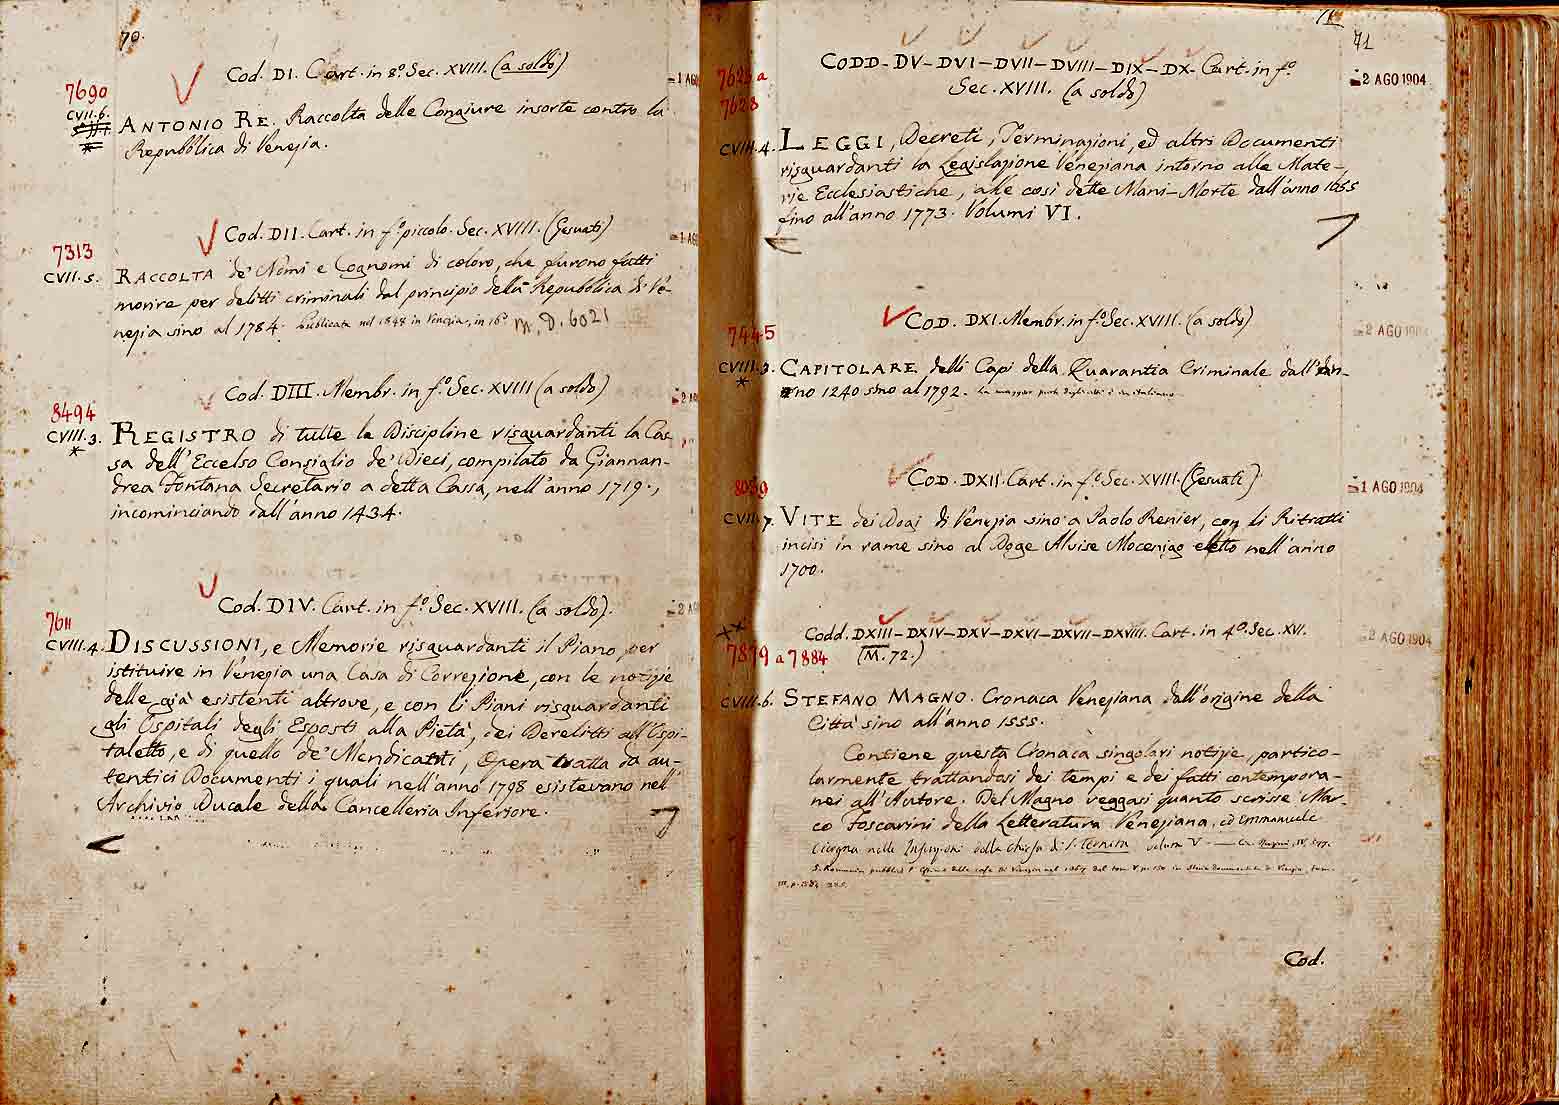 70.
Cod. DI. Cart. in 8.º Sec. XVIII. (a soldo)
- 1 AGO
7690
CVII.6.
*
ANTONIO RE. Raccolta delle Congiure insorte contro la
Repubblica di Venezia.
Cod. DII. Cart. in fº piccolo. Sec. XVIII. (Gesuati)
- 1 AGO
7313
CVII.5.
RACCOLTA de' Nomi e Cognomi di coloro, che furono fatti
morire per delitti criminali dal principio della Repubblica di Ve-
nezia sino al 1784. Pubblicata nel 1848 in Venezia, in 16º m. D. 6021
Cod. DIII. Membr. in fº. Sec. XVIII (a soldo)
- 2 AG
8494
CVIII.3.
*
REGISTRO di tutte le Discipline risguardanti la Cas-
sa dell'Eccelso Consiglio de' Dieci, compilato da Giannan-
drea Fontana Secretario a detta Cassa, nell'anno 1719.,
incominciando dall'anno 1434.
Cod. DIV. Cart. in fº. Sec. XVIII. (a soldo).
- 2 AG
7611
CVIII.4.
DISCUSSIONI, e Memorie risguardanti il Piano per
istituire in Venezia una Casa di Correzione, con le notizie
delle già esistenti altrove, e con li Piani risguardanti
gli Ospitali degli Esposti alla Pietà, dei Derelitti all'Ospi-
taletto, e di quello de' Mendicanti, Opera tratta da au-
tentici Documenti i quali nell'anno 1798 esistevano nell'
Archivio Ducale della Cancelleria Inferiore.
71
CODD- DV- DVI- DVII- DVIII- DIX- DX- Cart. in fº.
Sec. XVIII. (a soldo)
- 2 AGO 1904
7623 a
7628
CVIII.4.
LEGGI, Decreti, Terminazioni, ed altri Documenti
risguardanti la Legislazione Veneziana intorno alle Mate-
rie Ecclesiastiche, alle così dette Mani-Morte dall'anno 1655
fino all'anno 1773. Volumi VI.
COD. DXI. Membr. in fº. Sec. XVIII. (a soldo)
- 2 AGO 1904
7445
CVIII.3.
*
CAPITOLARE delli Capi della Quarantia Criminale dall'an-
no 1240 sino al 1792. La maggior parte degli atti è in italiano.
COD. DXII. Cart. in fº. Sec. XVIII. (Gesuati)
- 1 AGO 1904
8059
CVII.7.
VITE dei Dogi di Venezia sino a Paolo Renier, con li Ritratti
incisi in rame sino al Doge Alvise Mocenigo eletto nell'anno
1700.
Codd. DXIII- DXIV- DXV- DXVI- DXVII- DXVIII. Cart. in 4º. Sec. XVI.
(M. 72.)
- 2 AGO 1904
7879 a 7884
CVIII.6.
STEFANO MAGNO. Cronaca Veneziana dall'origine della
Città sino all'anno 1555.
Contiene questa Cronaca singolari notizie, partico-
larmente trattandosi dei tempi e dei fatti contempora-
nei all'Autore. Del Magno veggasi quanto scrisse Mar-
co Foscarini della Letteratura Veneziana, ed Emmanuele
Cicogna nelle Inscrizioni della chiesa di S. Ternita volum V
Cod.